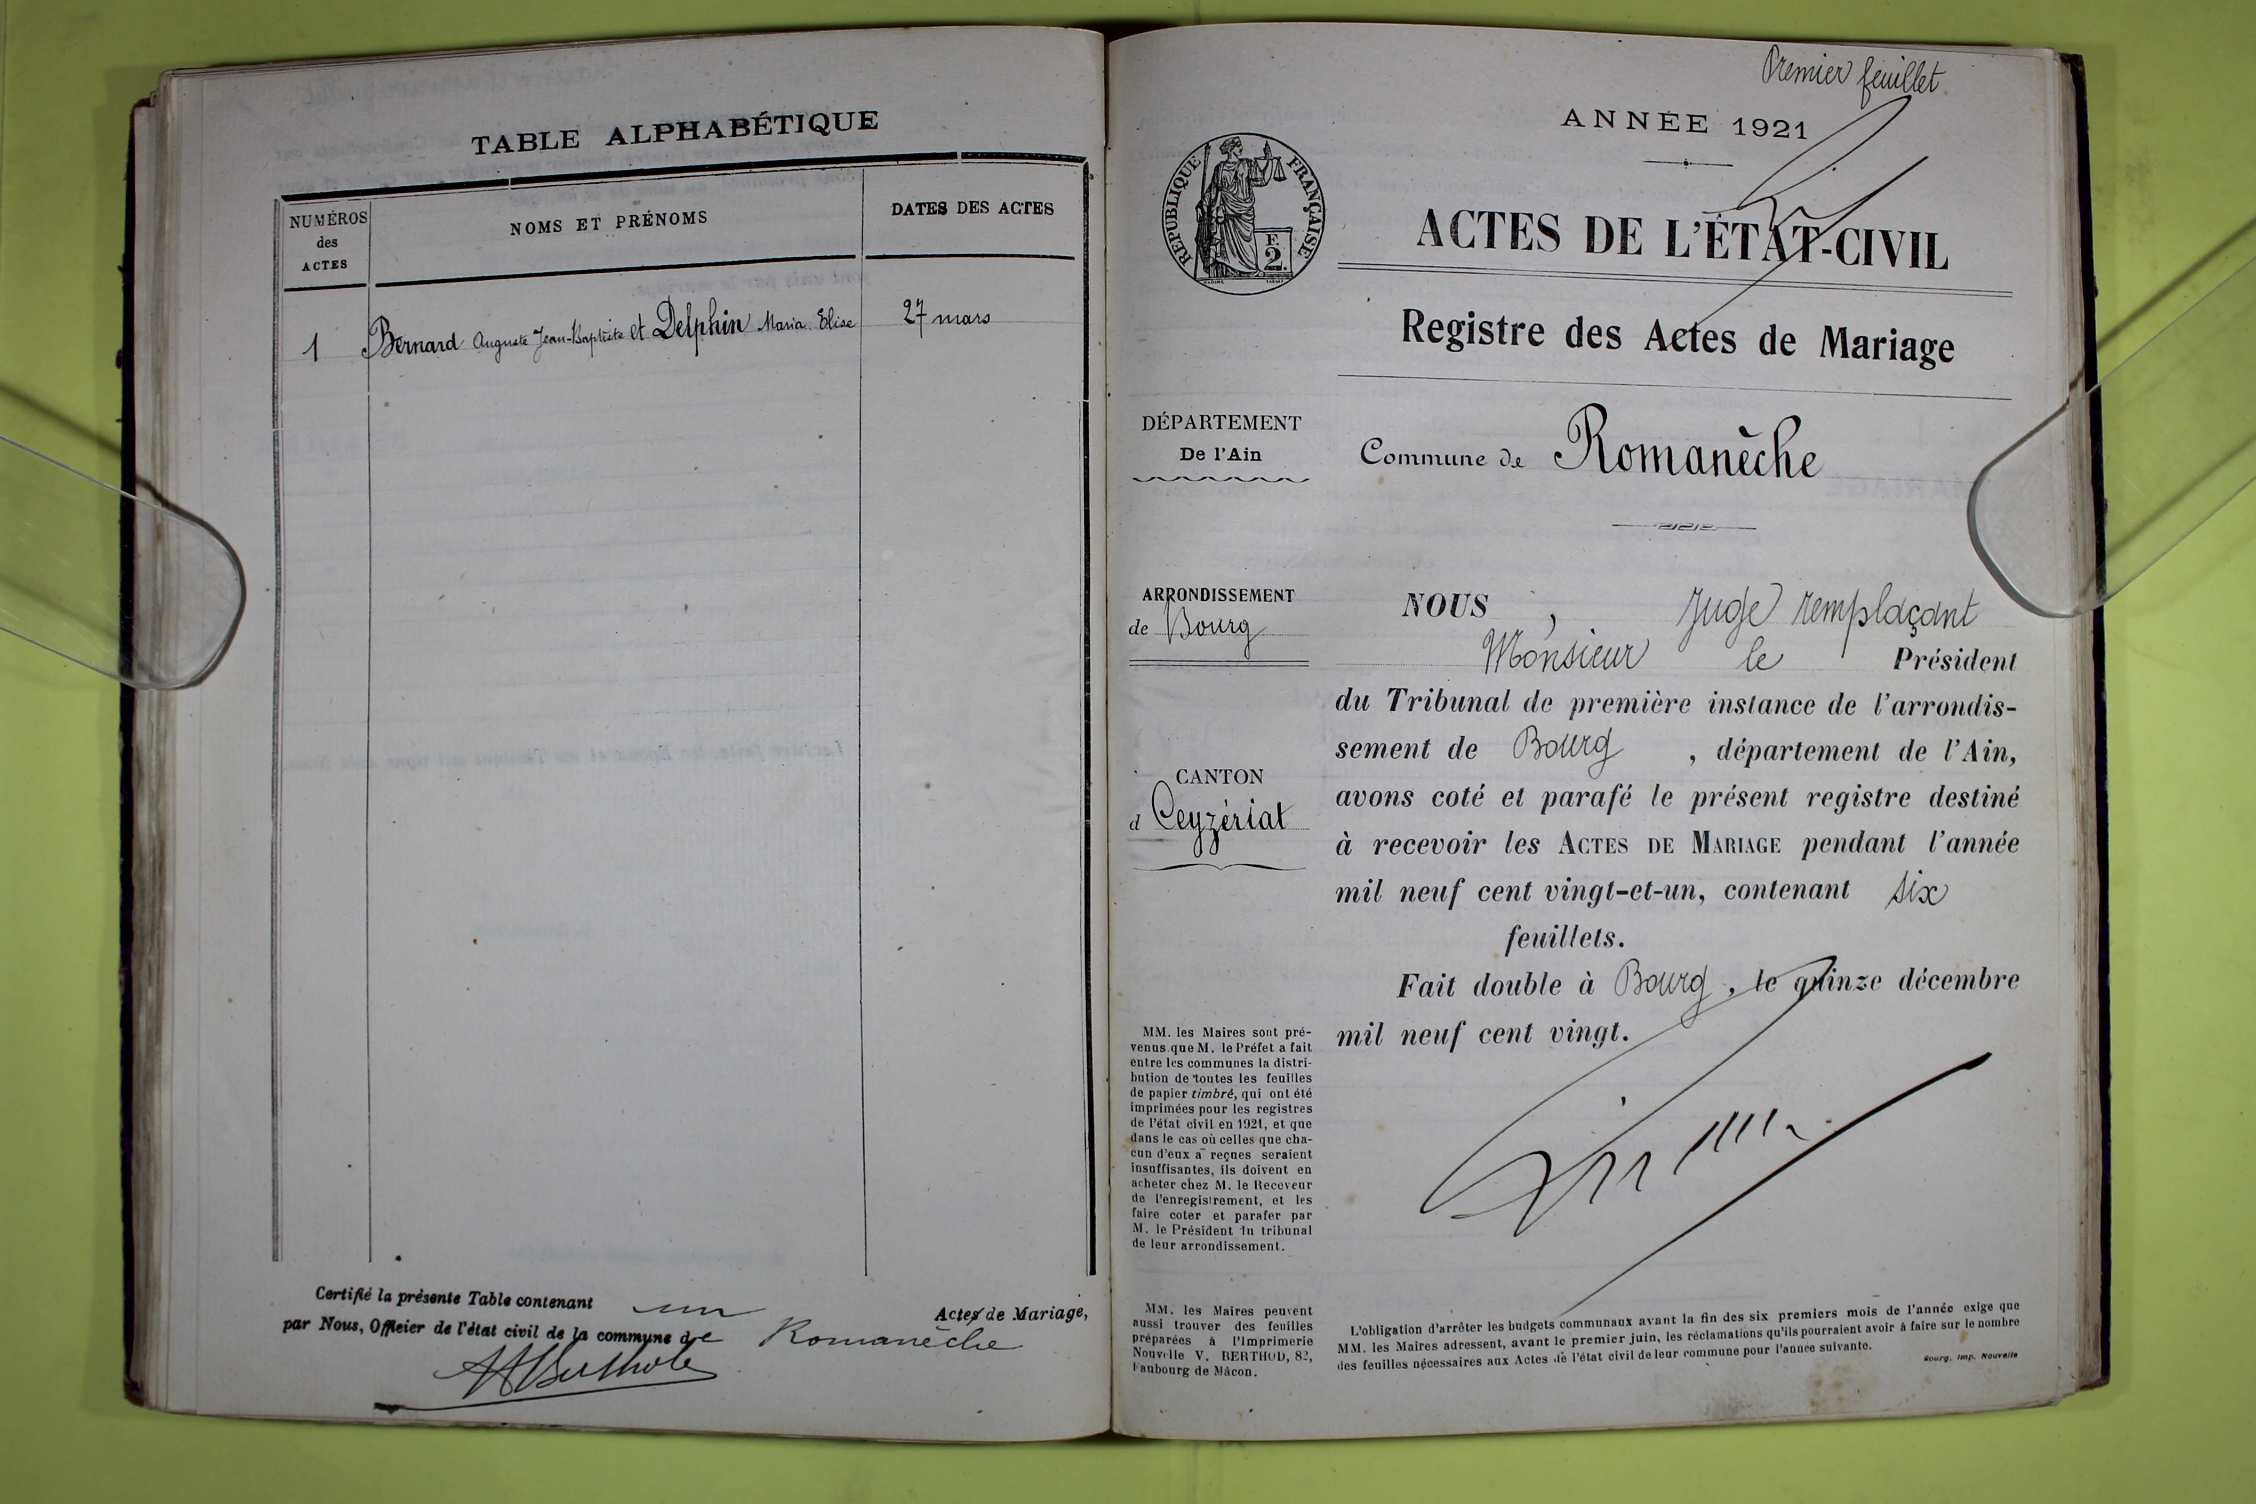 TABLE ALPHABÉTIQUE
NUMÉROS
des
ACTES
NOMS ET PRÉNOMS
DATES DES ACTES
1
Bernard Auguste Jean-Baptiste et Delphin Maria Elise
27 mars
Certifié la présente Table contenant un Actes de Mariage,
par Nous, Officier de l'état civil de la commune de Romanèche
Premier feuillet
ANNÉE 1921
RÉPUBLIQUE FRANÇAISE
F.
2.
ACTES DE L'ÉTAT-CIVIL
Registre des Actes de Mariage
DÉPARTEMENT
De l'Ain
Commune de Romanèche
ARRONDISSEMENT
de Bourg
CANTON
d Ceyzériat
NOUS , Juge remplaçant
Monsieur le Président
du Tribunal de première instance de l'arrondis-
sement de Bourg , département de l'Ain,
avons coté et parafé le présent registre destiné
à recevoir les ACTES DE MARIAGE pendant l'année
mil neuf cent vingt-et-un, contenant six
feuillets.
Fait double à Bourg , le quinze décembre
mil neuf cent vingt.
MM. les Maires sont pré-
venus que M. le Préfet a fait
entre les communes la distri-
bution de toutes les feuilles
de papier timbré, qui ont été
imprimées pour les registres
de l'état civil en 1921, et que
dans le cas où celles que cha-
cun d'eux a reçues seraient
insuffisantes, ils doivent en
acheter chez M. le Receveur
de l'enregistrement, et les
faire coter et parafer par
M. le Président du tribunal
de leur arrondissement.
MM. les Maires peuvent
aussi trouver des feuilles
préparées à l'Imprimerie
Nouvelle V. BERTHOD, 82,
Faubourg de Mâcon.
L'obligation d'arrêter les budgets communaux avant la fin des six premiers mois de l'année exige que
MM. les Maires adressent, avant le premier juin, les réclamations qu'ils pourraient avoir à faire sur le nombre
des feuilles nécessaires aux Actes de l'état civil de leur commune pour l'année suivante.
Bourg, Imp. Nouvelle